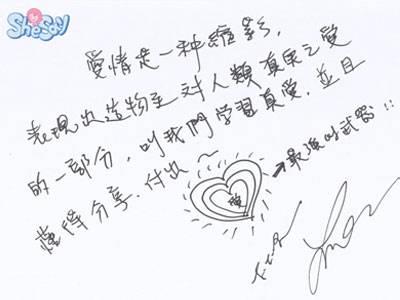 SheSay
愛情是一种縮影,
表現出造物主对人類真実之愛
的一部分,叫我們学習真愛,並且
懂得分享.付出~
→最強的武器!!